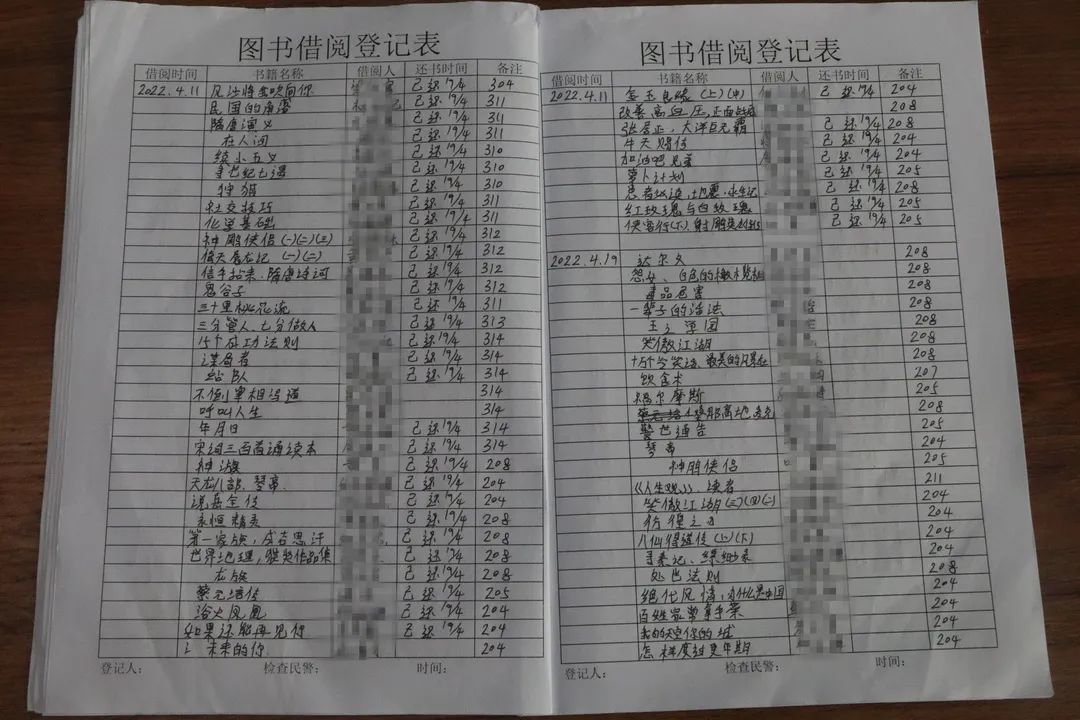 图书借阅登记表
借阅时间 书籍名称 借阅人 还书时间 备注
2022.4.11 风沙将会吹向你 已还19/4 304
民国的角落 已还19/4 311
隋唐演义 已还19/4 311
在人间 已还19/4 311
续小五义 已还19/4 310
寻世纪七遇 已还19/4 310
狩猎 已还19/4 310
社交技巧 已还19/4 311
化学基础 已还19/4 311
神鹏侠侣(一)(二)(三) 已还19/4 312
倚天屠龙记(一)(二) 已还19/4 312
信手拈来,隋唐诗词 已还19/4 312
鬼谷子 已还19/4 312
三十里桃花流 已还19/4 311
三分管人、七分做人 已还19/4 313
15个成功法则 已还19/4 314
谋局者 已还19/4 314
站队 已还19/4 314
314
呼叫人生 314
年月日 已还19/4 314
宋词三百首诵读本 已还19/4 314
神族 已还19/4 208
天龙八部.琴帝. 已还19/4 204
说岳全传 已还19/4 204
永恒精灵 已还19/4 208
第一家族,成吉思汗 已还19/4 208
世界地理,雅奖作品集 已还19/4 208
龙族 已还19/4 208
蔡元培传 已还19/4 205
浴火凤凰 已还19/4 204
如果还能再见你 已还19/4 204
未来的你 204
登记人: 检查民警: 时间:
图书借阅登记表
借阅时间 书籍名称 借阅人 还书时间 备注
2022.4.11 (上)(中) 已还19/4 204
改善高血压,正面 208
张居正,大洋巨无霸 已还19/4 208
牛天赐传 已还19/4 204
加油吧兄弟 已还19/4 204
萝卜计划 已还19/4 205
已还19/4 208
红玫瑰与白玫瑰 已还19/4 205
侠客行(下)、射鹏英雄传 已还19/4 205
2022.4.19 达尔文 208
怨女、白色的橄榄树 208
毒品危害 208
一辈子的活法 208
王立军团 208
笑傲江湖 208
十万个冷笑话、最美的风景在 208
饮食术 207
福尔摩斯 205
208
警世通告 205
琴帝 204
神鹏侠侣 205
《人生观》、读者 211
笑傲江湖(三)(四)(一) 204
彷徨之刃 204
八仙得道传(上)(下) 204
寻秦记、缥缈录 204
处世法则 208
绝代风情,为什么是中国 204
百姓家常拿手菜 204
我的天空你的城 204
怎样度过更年期 204
登记人: 检查民警: 时间: